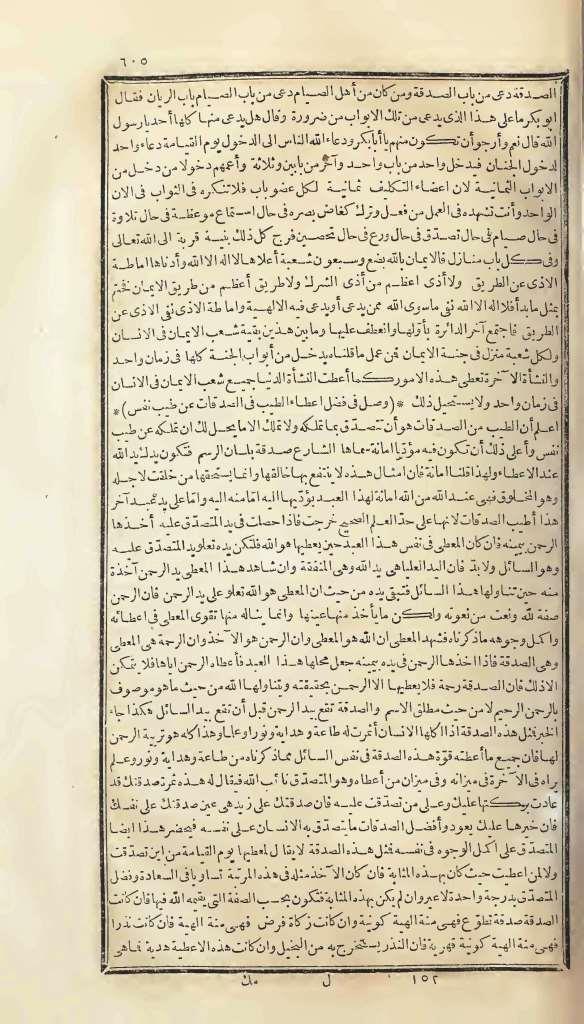 ٦٠٥
الصدقة دعى من باب الصدقة ومن كان من أهل الصيام دعى من باب الصيام باب الريان فقال
أبو بكر ما على هذا الذى يدعى من تلك الابواب من ضرورة وقال هل يدعى منها كلها أحد يا رسول
الله قال نعم وأرجو أن تكون منهم يا أبا بكر ودعاء الله الناس الى الدخول يوم القيامة دعاء واحد
لدخول الجنان فيدخل واحد من باب واحد وآخر من بابين وثلاثة وأعمهم دخولا من دخل من
الابواب الثمانية لان أعضاء التكليف ثمانية لكل عضو باب فلا تنكره فى الثواب فى الآن
الواحد وأنت تشهده فى العمل من فعل وترك كغاض بصره فى حال استماع موعظة فى حال تلاوة
فى حال صيام فى حال تصدّق فى حال ورع فى حال تحصين فرج كل ذلك بنية قربة الى الله تعالى
وفى كل باب منازل فالايمان بالله بضع وسبعون شعبة أعلاها لا اله الا الله وأدناها اماطة
الاذى عن الطريق ولا أذى أعظم من أذى الشرك ولا طريق أعظم من طريق الايمان فختم
بمثل ما بدأ فلا اله الا الله نفى ما سوى الله ممن يدعى أو يدعى فيه الالهية واماطة الاذى نفى الاذى عن
الطريق فاجتمع آخر الدائرة بأولها وانعطف عليها وما بين هذين بقية شعب الايمان فى الانسان
ولكل شعبة منزل فى جنة الايمان فمن عمل ما قلناه يدخل من أبواب الجنة كلها فى زمان واحد
والنشأة الآخرة تعطى هذه الامور كما أعطت النشأة الدنيا جميع شعب الايمان فى الانسان
فى زمان واحد ولا يستحيل ذلك *(وصل فى فضل اعطاء الطيب فى الصدقات عن طيب نفس)*
اعلم أن الطيب من الصدقات هو أن تتصدّق بما تملكه ولا تملك الا ما يحل لك أن تملكه عن طيب
نفس وأعلى ذلك أن تكون فيه مؤدّيا أمانة سماها الشارع صدقة بلسان الرسم فتكون يدك يد الله
عند الاعطاء ولهذا قلنا أمانة فان أمثال هذه لا ينتفع بها خالقها وانما يستحقها من خلقت لاجله
وهو المخلوق فهى عند الله من الله أمانة لهذا العبد يؤدّيها اليه امّا منه اليه وامّا على يد عبد آخر
هذا أطيب الصدقات لانها على حدّ العلم الصحيح خرجت فاذا حصلت فى يد المتصدّق عليه أخذها
الرحمن بيمينه فان كان المعطى فى نفس هذا العبد حين يعطيها هو الله فلتكن يده تعلو يد المتصدّق عليه
وهو السائل ولا بدّ فان اليد العليا هى يد الله وهى المنفقة وان شاهد هذا المعطى يد الرحمن آخذة
منه حين تناولها هذا السائل فتبقى يده من حيث ان المعطى هو الله تعلو على يد الرحمن فان الرحمن
صفة لله ونعت من نعوته ولكن ما يأخذ منها عينها وانما يناله منها تقوى المعطى فى اعطائه
واكمل وجوهه ما ذكرناه فشهد المعطى ان الله هو المعطى وان الرحمن هو الآخذ وان الرحمة هى المعطى
وهى الصدقة فاذا اخذها الرحمن فى يده بيمينه جعل محلها هذا العبد فأعطاه الرحمن اياها فلا يتمكن
الا ذلك فان الصدقة رحمة فلا يعطيها الا الرحمن بحقيقته ويتناولها الله من حيث ما هو موصوف
بالرحمن الرحيم لا من حيث مطلق الاسم والصدقة تقع بيد الرحمن قبل أن تقع بيد السائل هكذا جاء
الخبر فمثل هذه الصدقة اذا اكلها الانسان أثمرت له طاعة وهداية ونورا وعلما وهذا كله هو تربية الرحمن
لها فان جميع ما أعطته قوّة هذه الصدقة فى نفس السائل مما ذكرناه من طاعة وهداية ونور وعلم
يراه فى الآخرة فى ميزانه وفى ميزان من أعطاه وهو المتصدّق نائب الله فيقال له هذه ثمرة صدقتك قد
عادت بركتها عليك وعلى من تصدّقت عليه فان صدقتك على زيد هى عين صدقتك على نفسك
فان خيرها عليك يعود وأفضل الصدقات ما يتصدّق به الانسان على نفسه فيحضر هذا أيضا
المتصدّق على اكمل الوجوه فى نفسه فمثل هذه الصدقة لا يقال لمعطيها يوم القيامة من أين تصدّقت
ولا لمن اعطيت حيث كان بهذه المثابة فان كان الآخذ مثله فى هذه المرتبة تساويا فى السعادة وفضل
المتصدّق بدرجة واحدة لا غير وان لم يكن بهذه المثابة فتكون بحسب الصفة التى يقيمه الله فيها فان كانت
الصدقة صدقة تطوّع فهى منة الهية كونية وان كانت زكاة فرض فهى منة الهية فان كانت نذرا
فهى منة الهية كونية قهرية فان النذر يستخرج به من البخيل وان كانت هذه الاعطية هدية فما هى
١٥٢ ل مك